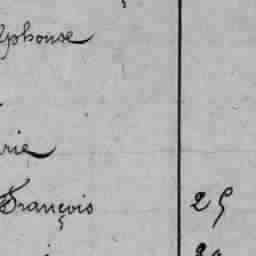 lphonse
rie
François 25